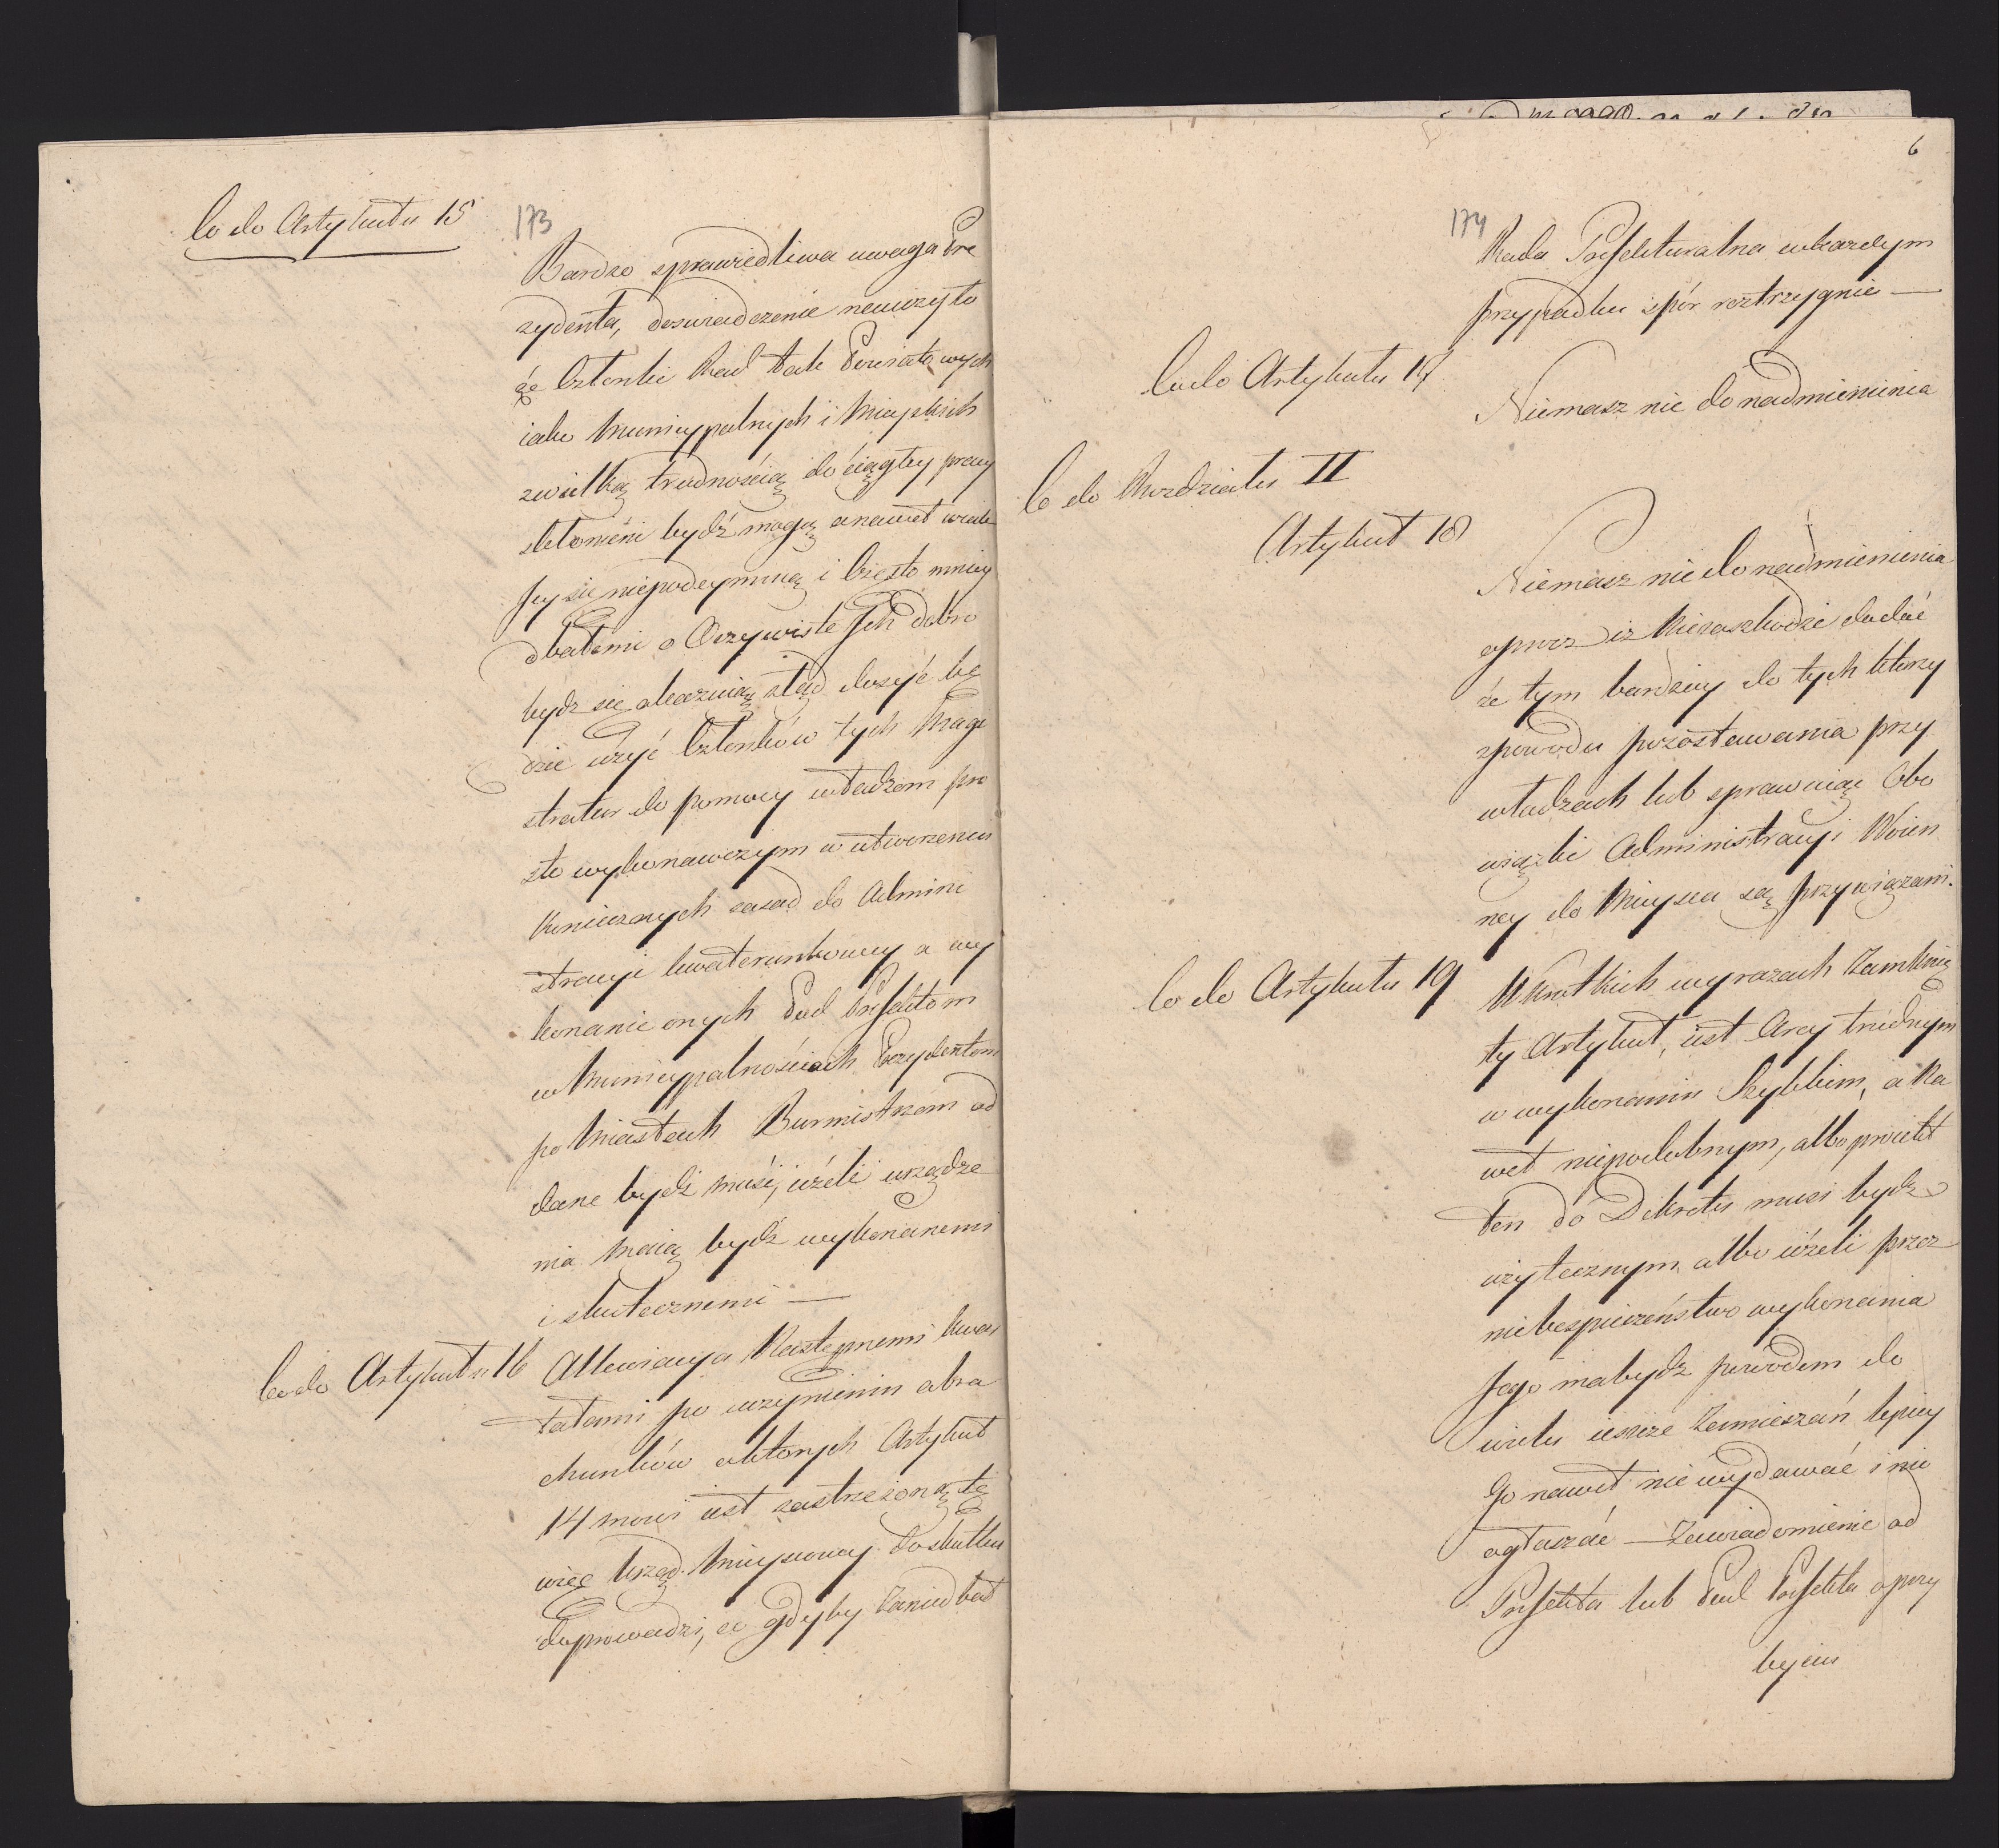 173
Co do Artykułu 15
Bardzo sprawiedliwa uwaga Pre
zydenta, doswiadczenie nauczyło
że Członki Rad tak Powiatowych
iako Municypalnych i Mieyskich
zwielką trudnością do ciągłey pracy
skłonieni bydź mogą anawet wcale
Jey się niepodeymuią i Często mniey
dbałemi o Oczywiste Ich dobro
bydz się okazuią, ztąd dosyć bę
dzie użyć Członków tych Magi
stratur do pomocy władzom pro
sto wykonawczym w utworzeniu
koniecznych zasad do Admini
stracyi kwaterunkowey a wy
konanie onych Pod Prefektom
w Municypalnościach Prezydentom
po Miastach Burmistrzom od
dane bydź musi, ieżeli urządze
nia maią bydź wykonanemi
i skutecznemi —
Co do Artykułu 16
Allewiacya Następnemi kwar
tałami po uczynieniu obra
chunków októrych Artykuł
14 mowi iest zastrzeżoną, tę
więc Urząd Mieyscowy do skutku
doprowadzi, a gdyby Zaniedbał
6
174
Rada Prefekturalna wkażdym
przypadku spór roztrzygnie —
Co do Artykułu 17
Niemasz nic do nadmienienia
Co do Rozdziału II
Artykuł 18
Niemasz nic do nadmienienia
oprocz iż Niezaszkodzi dodać
że tym bardziey do tych którzy
zpowodu pozostawania przy
władzach lub sprawuiąc Obo
wiązki Administracyi Woien
ney do Mieysca są przywiązani.
Co do Artykułu 19
W krótkich wyrazach Zamknię
ty Artykuł, iest Arcy trudnym
w wykonaniu Szybkim, a Na
wet niepodobnym, albo proiekt
ten do Dekretu musi bydz
użytecznym albo ieżeli przez
niebespieczeństwo wykonania
Jego mabydź powodem do
wielu ieszcze Zamieszań lepiey
Go nawet nie wydawać i nie
ogłaszać — Zawiadomienie od
Prefekta lub Pod Prefekta o przy
byciu